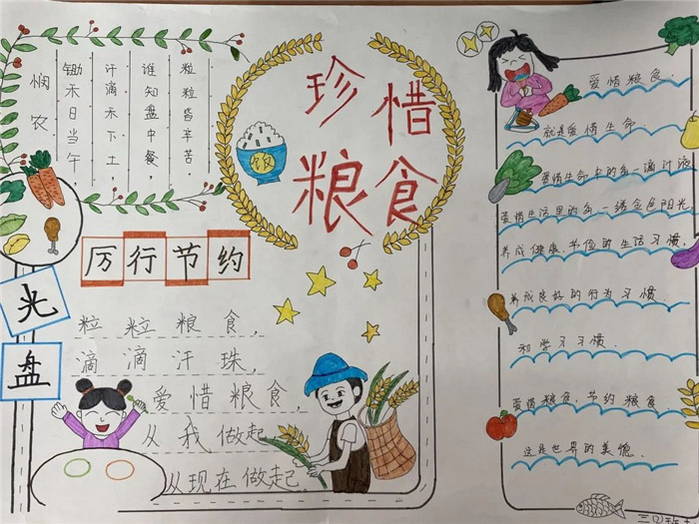 悯农
锄禾日当午,
汗滴禾下土,
谁知盘中餐,
粒粒皆辛苦.
珍惜
粮食
饭
厉行节约
光
盘
粒粒粮食,
滴滴汗珠,
爱惜粮食,
从我做起
从现在做起.
爱惜粮食.
就是爱惜生命.
爱惜生命中的每一滴汁液
爱惜生活里的每一缕金色阳光,
养成健康、节俭的生活习惯,
养成良好的行为习惯.
和学习习惯.
爱惜粮食、节约粮食
这是世界的美德.
三(2)班